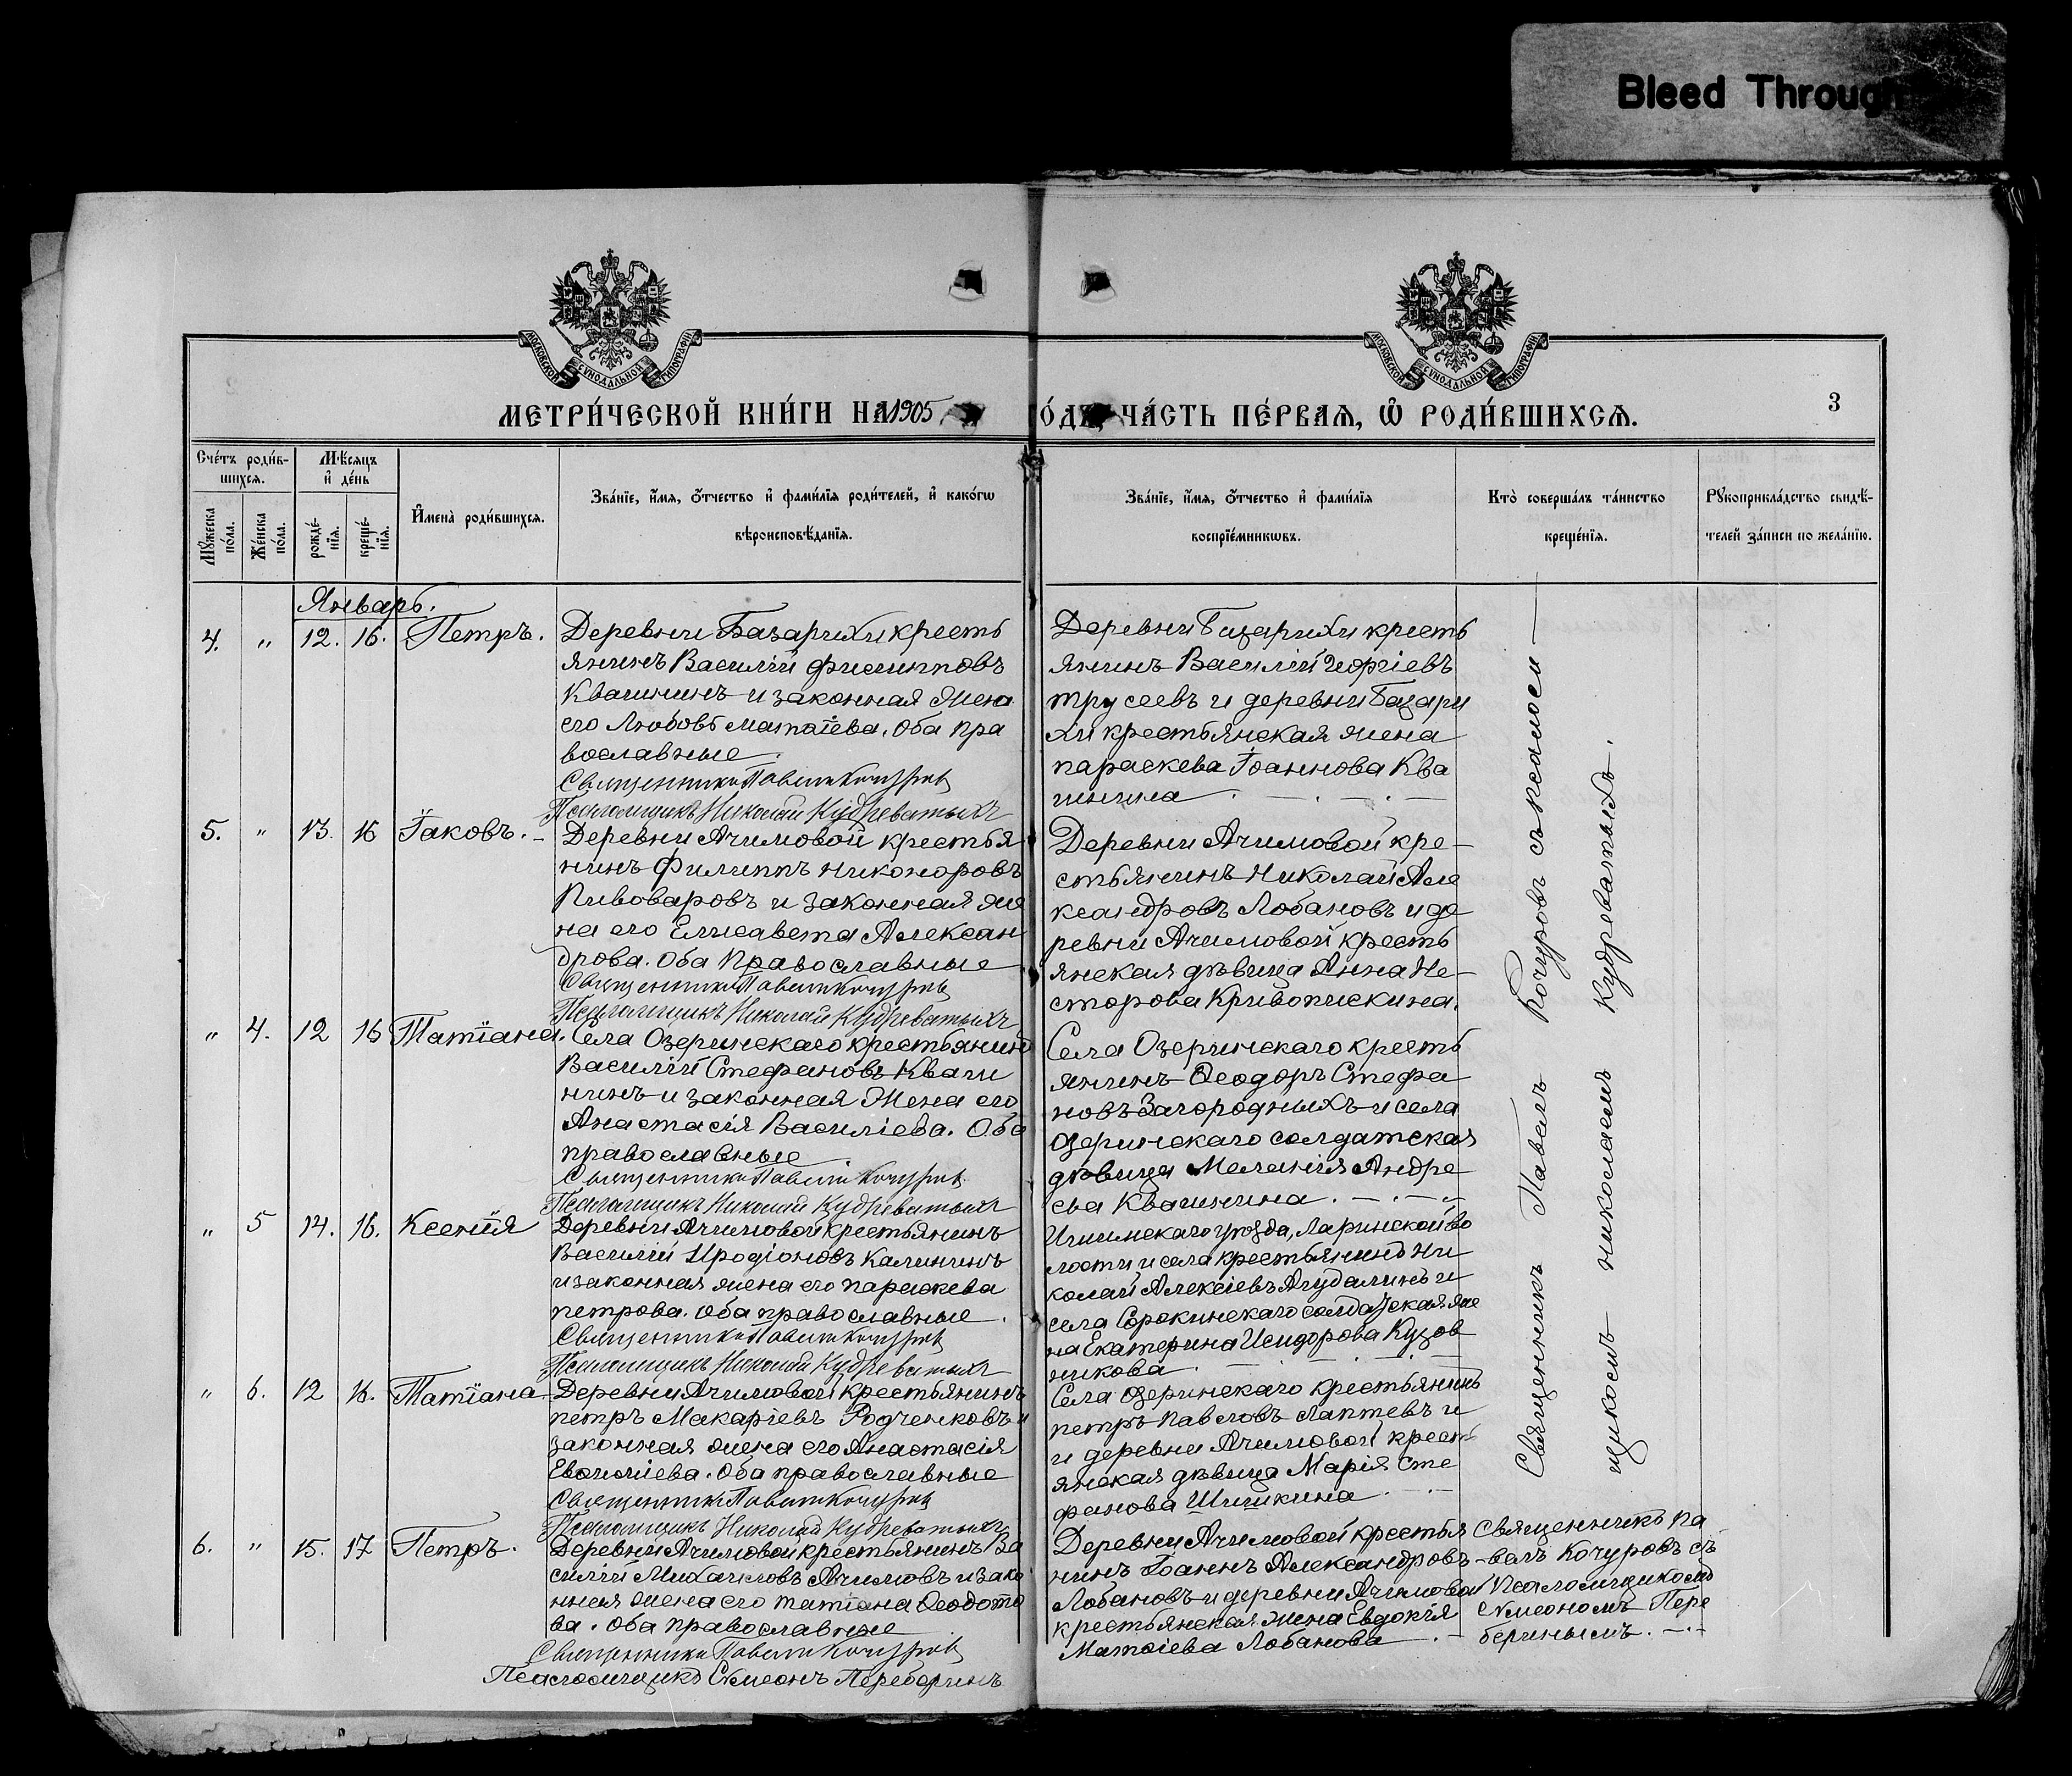 Bleed Through
МОСКОВСКОЙ СѴНОДАЛЬНОЙ ТИПОГРАФІИ
МОСКОВСКОЙ СѴНОДАЛЬНОЙ ТИПОГРАФІИ
МЕТРИ́ЧЕСКОЙ КНИ́ГИ НА 1905 ГО́ДЪ, ЧА́СТЬ ПЕ́РВАЯ, Ѡ҆ РОДИ́ВШИХСЯ.
3
Сче́тъ роди́в-
шихся.
Мѣ́сяцъ
и҆ де́нь
Мꙋ́жеска
по́ла.
Же́нска
по́ла.
рожде́-
нїя.
креще́-
нїя.
И҆мена̀ роди́вшихся.
Зва́нїе, и҆́мя, ѻ҆́тчество и҆ фами́лїя роди́телей, и҆ како́гѡ
вѣроисповѣ́данїя.
Зва́нїе, и҆́мя, ѻ҆́тчество и҆ фами́лїя
воспрїе́мникѡвъ.
Кто̀ соверша́лъ та́инство
креще́нїя.
Рꙋкоприкла́дство свидѣ́-
телей за́писи по жела́нїю.
Январь.
4. " 12. 16. Петръ.
Деревни Базарихи кресть
янинъ Василій Филипповъ
Квашнинъ и законная жена
его Любовь Матѳіева. Оба пра
вославные.
Священникъ Павелъ Кочуровъ
Псаломщикъ Николай Кудреватыхъ
Деревни Базарихи кресть
янинъ Василій Георгіевъ
Трусеевъ и деревни Базари
хи крестьянская жена
Параскева Іоаннова Ква
шнина
5. " 13. 16 Іаковъ.
Деревни Ачимовой крестья
нинъ Филиппъ Никоноровъ
Пивоваровъ и законная же
на его Елисавета Алексан
дрова. Оба Православные
Священникъ Павелъ Кочуровъ
Псаломщикъ Николай Кудреватыхъ
Деревни Ачимовой кре-
стьянинъ Николай Але
ксандровъ Лобановъ и де
ревни Ачимовой кресть
янская дѣвица Анна Не-
сторова Кривопискина.
" 4. 12 16 Татіана.
Села Озеринскаго крестьянинъ
Василій Стефановъ Кваши
нинъ и законная жена его
Анастасія Василіева. Оба
православные
Священникъ Павелъ Кочуровъ
Псаломщикъ Николай Кудреватыхъ
Села Озеринскаго кресть
янинъ Ѳеодоръ Стефа
новъ Загородныхъ и села
Озеринскаго солдатская
дѣвица Меланія Андре
ева Квашнина.
" 5 14. 16. Ксенія
Деревни Ачимовой крестьянинъ
Василій Иродіоновъ Калининъ
и законная жена его Параскева
Петрова. Оба православные.
Священникъ Павелъ Кочуровъ
Псаломщикъ Николай Кудреватыхъ
Ишимскаго уѣзда, Ларинской во
лости и села крестьянинъ Ни
колай Алексіевъ Агудалинъ и
села Сорокинскаго солдатская же
на Екатерина Исидорова Кузов
никова
" 6. 12 16. Татіана
Деревни Ачимовой крестьянинъ
Петръ Макаріевъ Родченковъ и
законная жена его Анастасія
Оба православные
Священникъ Павелъ Кочуровъ
Псаломщикъ Николай Кудреватыхъ
Села Озеринскаго крестьянинъ
Петръ Павловъ Лаптевъ и
и деревни Ачимовой кресть
янская дѣвица Марія Сте
фанова Шишкина
6. " 15. 17 Петръ.
Деревни Ачимовой крестьянинъ Ва
силій Михаиловъ Ачимовъ и зако
нная жена его Татіана Ѳеодото
ва. Оба православные
Священникъ Павелъ Кочуровъ
Псаломщикъ Сѵмеонъ Переберинъ
Деревни Ачимовой крестья
нинъ Іоаннъ Александровъ
Лобановъ и деревни Ачимовой
крестьянская жена Евдокія
Матѳіева Лобанова
Священникъ Павелъ Кочуровъ съ псаломщикомъ
Николаемъ Кудреватыхъ.
Священникъ Па
велъ Кочуровъ съ
псаломщикомъ
Сѵмеономъ Пере
беринымъ.